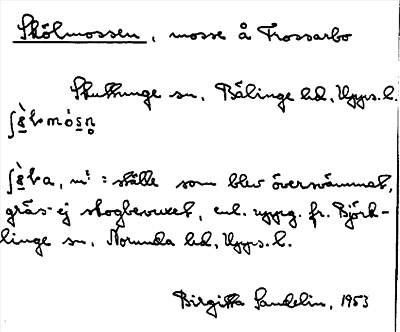 Skölmossen, mosse å Trossarbo
Skuttunge sn, Bälinge hd, Upps. l.
ʃö̀ɫmósn̥
ʃö̀ɫa, : ställe som blev översvämmat,
gräs- ej skogbevuxet, enl. uppg. fr. Björk-
linge sn, Norunda hd, Upps. l.
Birgitta Sandelin, 1953